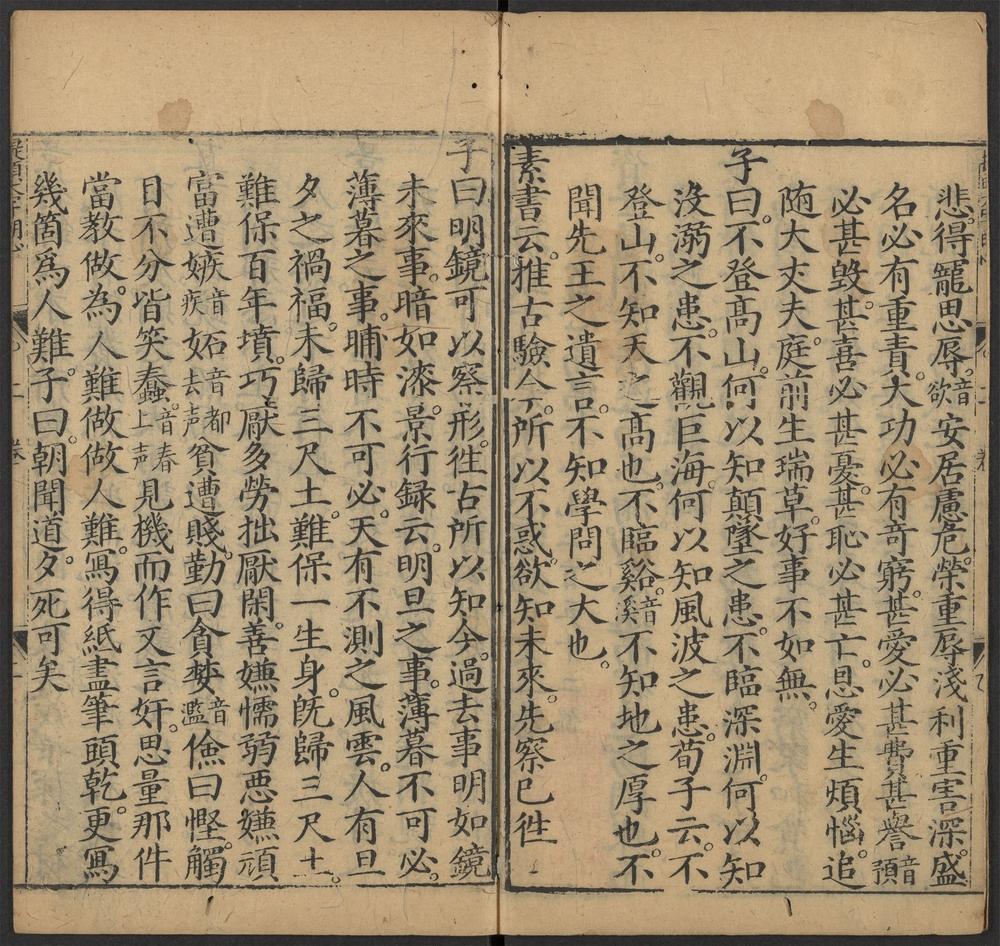 悲。得寵思辱。音欲安居慮危。榮重辱淺。利重害深。盛
名必有重責。大功必有竒窮。甚愛必甚費。甚譽音預
必甚毀。甚喜必甚憂。甚恥必甚亡。恩愛生煩惱。追
随大丈夫。庭前生瑞草。好事不如無。
子曰。不登高山。何以知顛墜之患。不臨深淵。何以知
没溺之患。不觀巨海。何以知風波之患。荀子云。不
登山。不知天之高也。不臨谿。音溪不知地之厚也。不
聞先王之遺言。不知學問之大也。
素書云。推古驗今。所以不惑。欲知未來。先察已徃
子曰。明鏡可以察形。徃古所以知今。過去事明如鏡
未來事。暗如漆。景行録云。明旦之事。薄暮不可必。
薄暮之事。晡時不可必。天有不測之風雲。人有旦
夕之禍福。未歸三尺土。難保一生身。旣歸三尺土。
難保百年墳。巧厭多勞拙厭閑。善嫌懦弱悪嫌頑
富遭嫉音疾妬音都去声貧遭賤。勤曰貪婪音濫儉曰慳。觸
目不分皆笑蠢。音春上声見機而作又言奸。思量那件
當教做。為人難做做人難。寫得紙盡筆頭乾。更寫
幾箇爲人難。子曰。朝聞道。夕死可矣